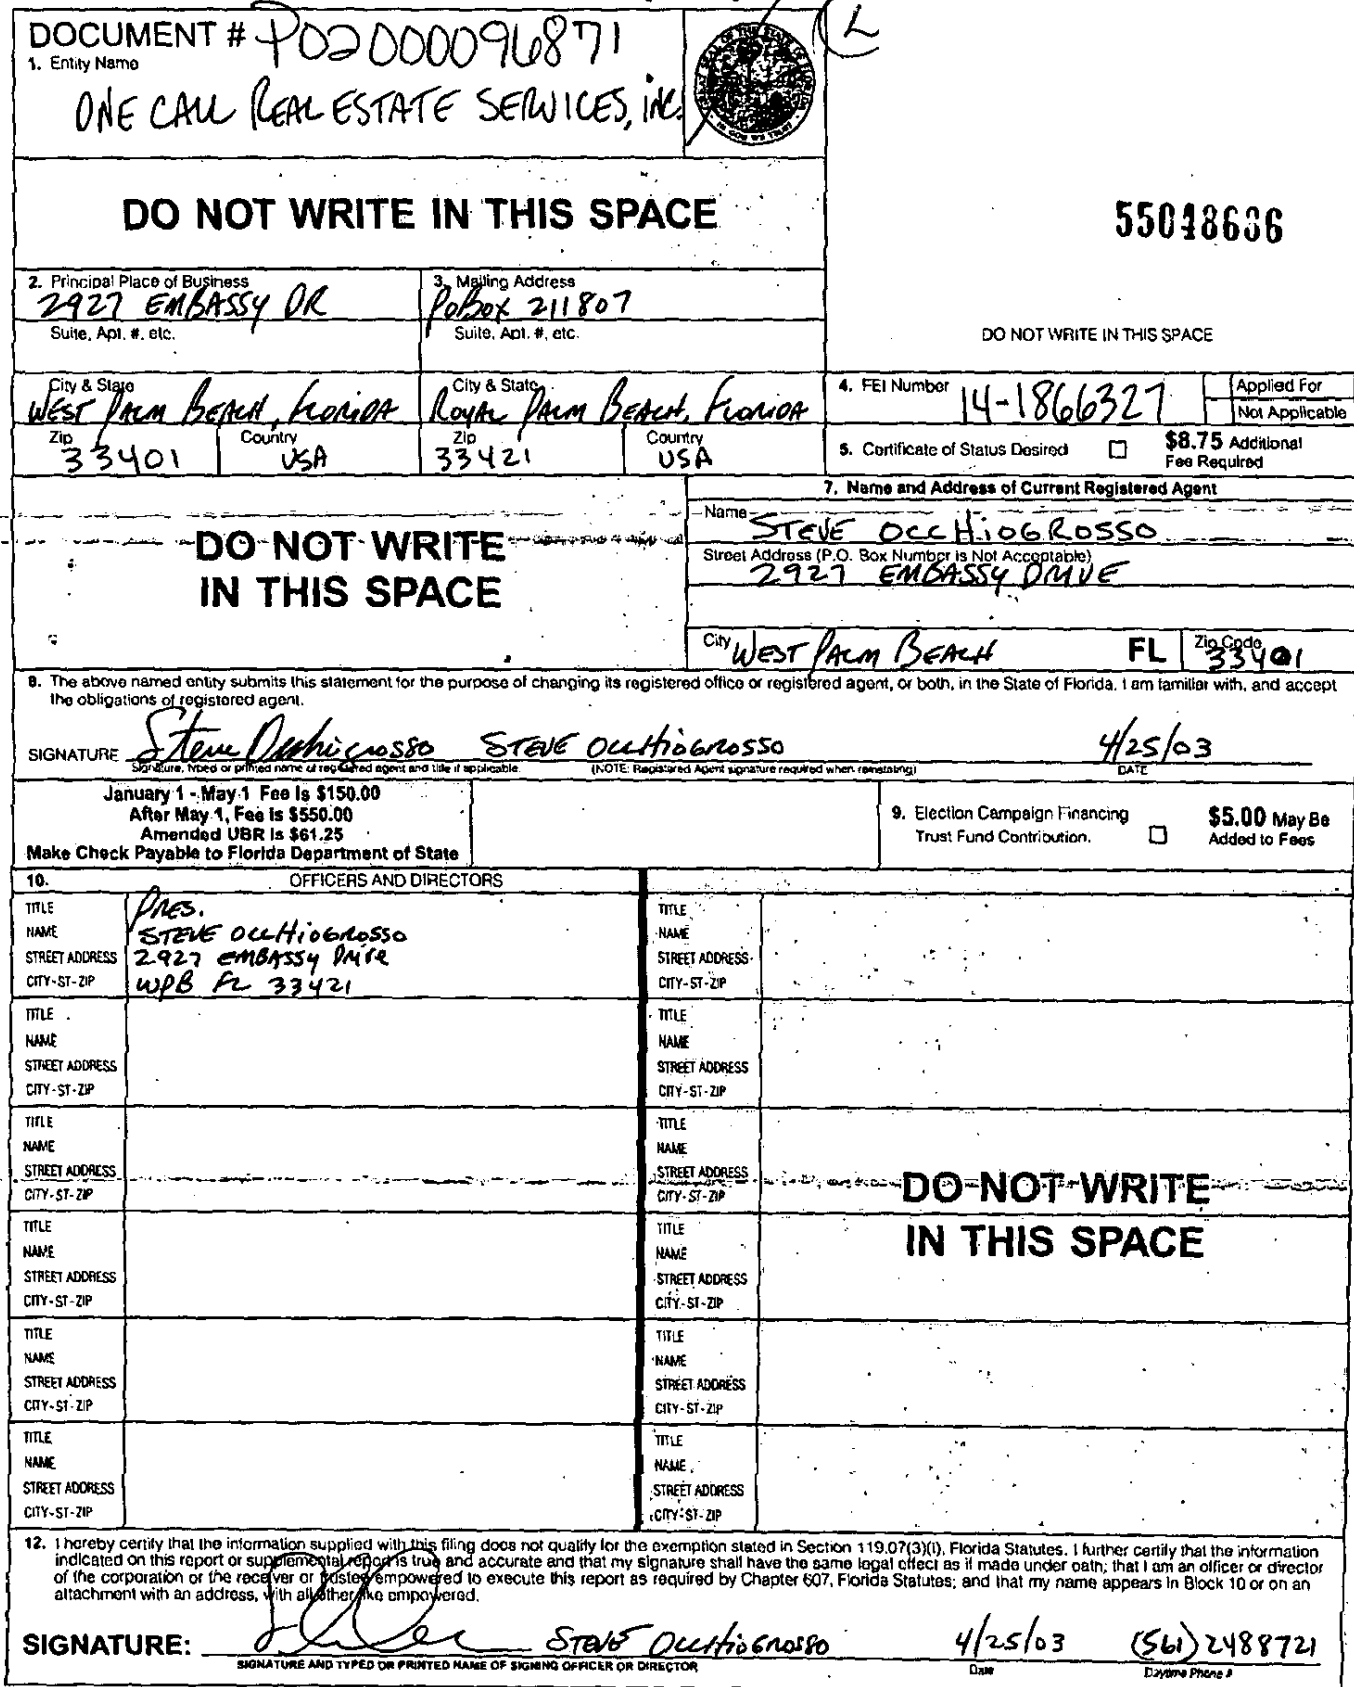 DOCUMENT # P02000096871
1. Entity Name
ONE CALL REAL ESTATE SERVICES, INC.
L
DO NOT WRITE IN THIS SPACE
55048636
2. Principal Place of Business
2927 EMBASSY DR
Suite, Apt. #, etc.
3. Mailing Address
PO BOX 211807
Suite, Apt. #, etc.
DO NOT WRITE IN THIS SPACE
City & State
WEST PALM BEACH, FLORIDA
City & State
ROYAL PALM BEACH, FLORIDA
Zip
33401
Country
USA
Zip
33421
Country
USA
4. FEI Number 14-1866327
Applied For
Not Applicable
5. Certificate of Status Desired
$8.75 Additional
Fee Required
DO NOT WRITE
IN THIS SPACE
7. Name and Address of Current Registered Agent
Name STEVE OCCHIOGROSSO
Street Address (P.O. Box Number is Not Acceptable)
2927 EMBASSY DRIVE
City WEST PALM BEACH FL Zip Code 33401
8. The above named entity submits this statement for the purpose of changing its registered office or registered agent, or both, in the State of Florida. I am familiar with, and accept
the obligations of registered agent.
SIGNATURE Steve Occhiogrosso STEVE OCCHIOGROSSO 4/25/03
Signature, typed or printed name of registered agent and title if applicable. (NOTE: Registered Agent signature required when reinstating) DATE
January 1 - May 1 Fee Is $150.00
After May 1, Fee is $550.00
Amended UBR is $61.25
Make Check Payable to Florida Department of State
9. Election Campaign Financing
Trust Fund Contribution.
$5.00 May Be
Added to Fees
10. OFFICERS AND DIRECTORS
TITLE PRES.
NAME STEVE OCCHIOGROSSO
STREET ADDRESS 2927 EMBASSY DRIVE
CITY-ST-ZIP WPB FL 33421
TITLE
NAME
STREET ADDRESS
CITY-ST-ZIP
TITLE
NAME
STREET ADDRESS
CITY-ST-ZIP
TITLE
NAME
STREET ADDRESS
CITY-ST-ZIP
TITLE
NAME
STREET ADDRESS
CITY-ST-ZIP
TITLE
NAME
STREET ADDRESS
CITY-ST-ZIP
TITLE
NAME
STREET ADDRESS
CITY-ST-ZIP
TITLE
NAME
STREET ADDRESS
CITY-ST-ZIP
TITLE
NAME
STREET ADDRESS
CITY-ST-ZIP
TITLE
NAME
STREET ADDRESS
CITY-ST-ZIP
TITLE
NAME
STREET ADDRESS
CITY-ST-ZIP
TITLE
NAME
STREET ADDRESS
CITY-ST-ZIP
DO NOT WRITE
IN THIS SPACE
12. I hereby certify that the information supplied with this filing does not qualify for the exemption stated in Section 119.07(3)(i), Florida Statutes. I further certify that the information
indicated on this report or supplemental report is true and accurate and that my signature shall have the same legal effect as if made under oath; that I am an officer or director
of the corporation or the receiver or trustee empowered to execute this report as required by Chapter 607, Florida Statutes; and that my name appears in Block 10 or on an
attachment with an address, with all other like empowered.
SIGNATURE: STEVE OCCHIOGROSSO 4/25/03 (561) 2488721
SIGNATURE AND TYPED OR PRINTED NAME OF SIGNING OFFICER OR DIRECTOR Date Daytime Phone #